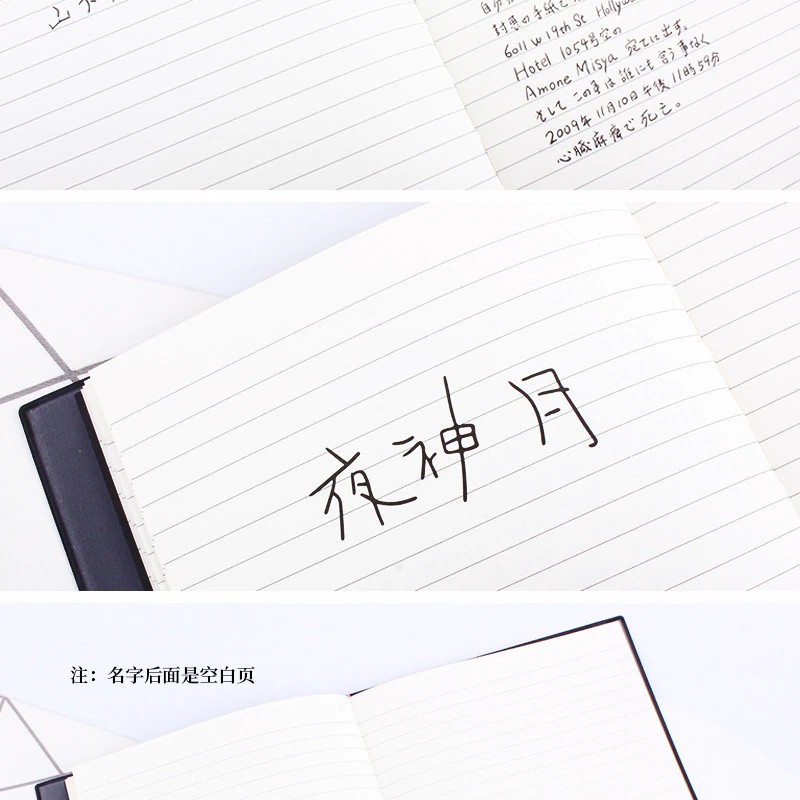 封悪の手紙で
6011 w 19th St Hollyw
Hotel 1054号室の
Amone Misya 宛てに出す。
そして この事は誰にも言う事なく
2009年11月10日 午後 11時59分
心臓麻痺で死亡。
夜神月
注：名字后面是空白页